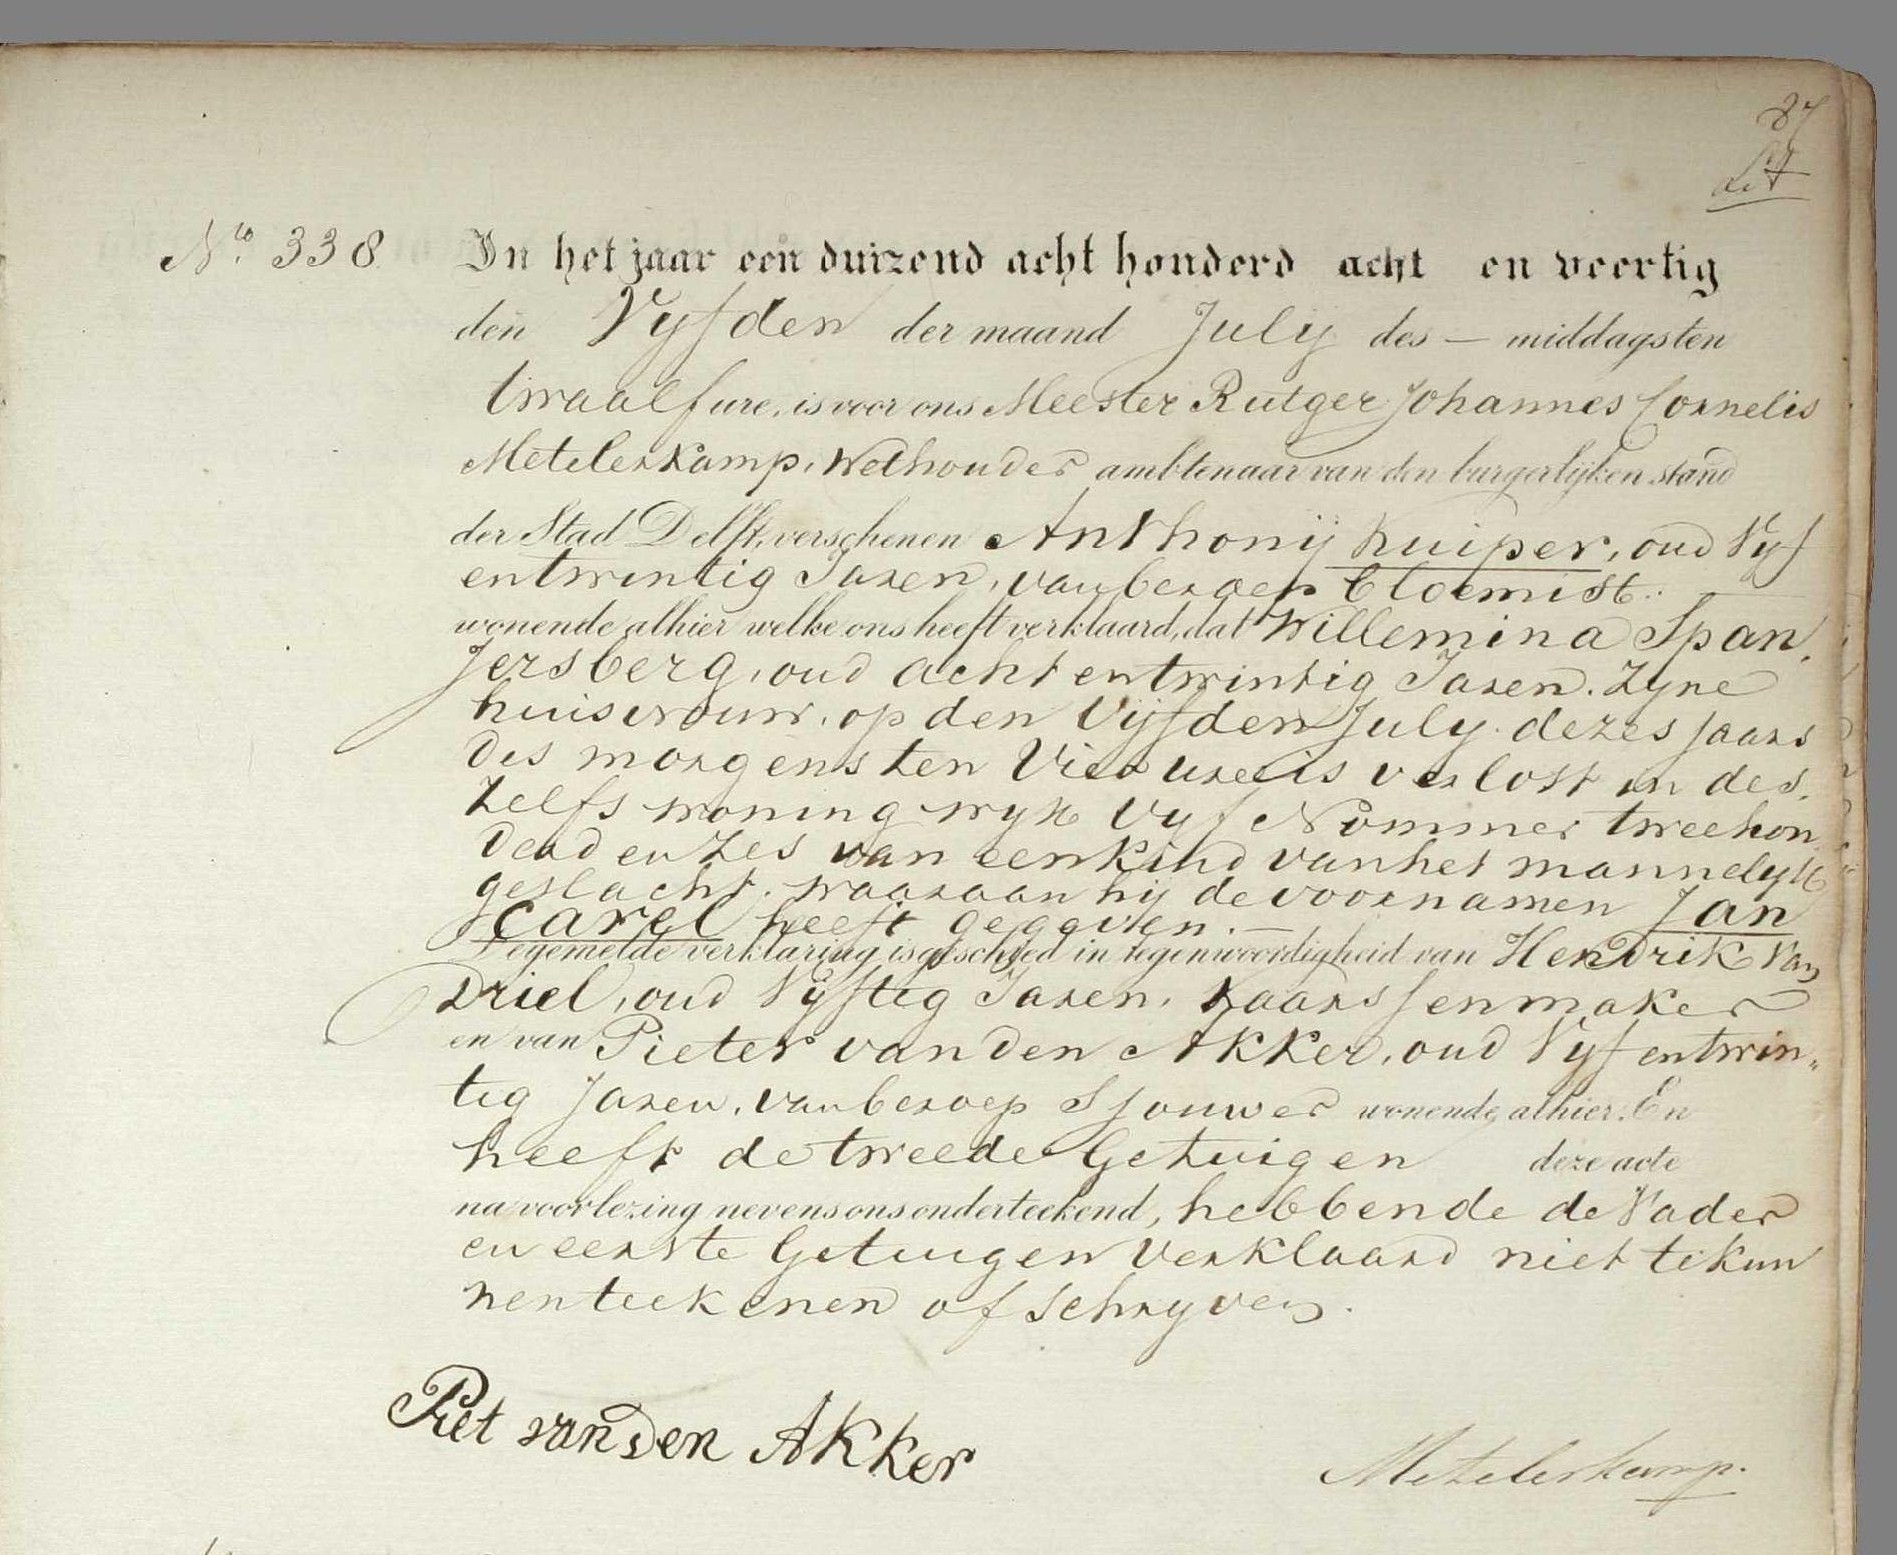 87
N.º 338 In het jaar een duizend acht honderd acht en veertig
den Vyfden der maand July des — middags ten
twaalf ure, is voor ons Meester Rutger Johannes Cornelis
Metelerkamp, Wethouder ambtenaar van den burgerlijken stand
der Stad Delft, verschenen Anthonij Kuiper, oud Vyf
entwintig Jaren, van beroep bloemist.
wonende alhier welke ons heeft verklaard, dat Willemina Span,
jersberg, oud acht entwintig Jaren. Zyne
huisvrouw, op den Vijfden July dezes jaars
des morgens ten Vier ure is verlost in des,
zelfs woning wyk Vyf Nommer tweehon
derd en Zes van een kind van het mannelyk
geslacht, waaraan hij de voornamen Jan
Carel heeft gegeven. —
De gemelde verklaring is geschied in tegenwoordigheid van Hendrik Van
Driel, oud Vijftig Jaren, Kaarssenmaker
en van Pieter van den Akker, oud Vyf entwin,,
tig Jaren, van beroep Sjouwer wonende alhier. En
heeft de tweede Getuigen deze acte
na voorlezing nevens ons onderteekend, hebbende de Vader
en eerste Getuigen Verklaard niet te kun
nen teekenen of schryven.
Piet van den Akker
Metelerkamp.